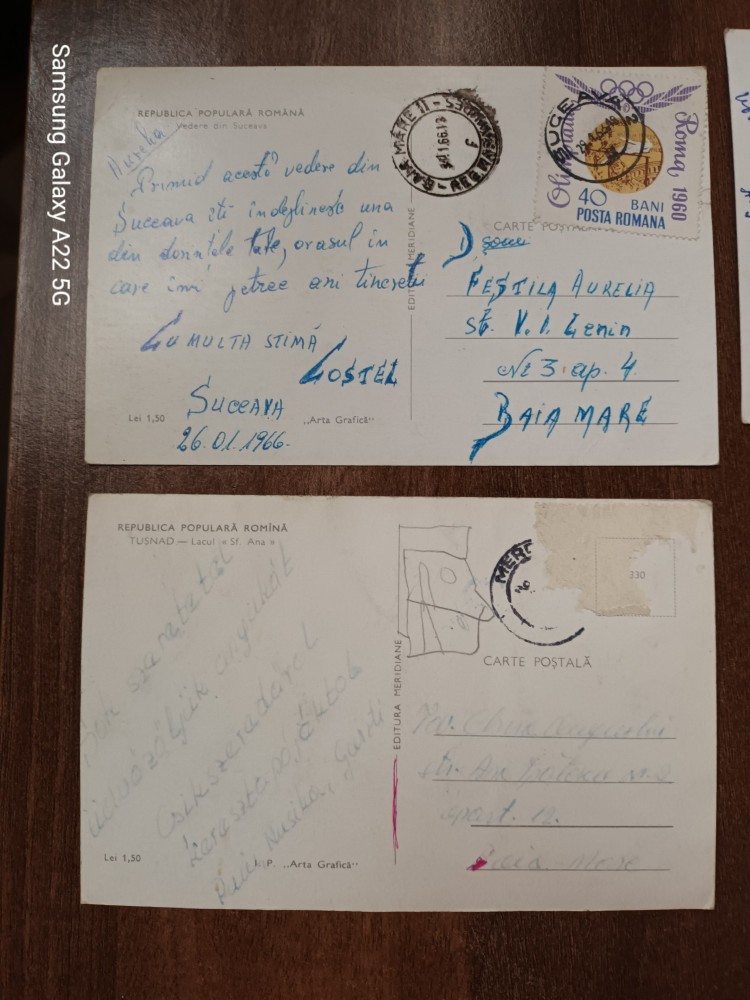 Samsung Galaxy A22 5G
REPUBLICA POPULARĂ ROMÂNĂ
Vedere din Suceava
Aurelia
Primiți această vedere din
Suceava îți îndeplinește una
din dorințele tale, orașul în
care îmi petrec ani tinereții
CU MULTA STIMĂ
COSTEL
SUCEAVA
26.01.1966.
Lei 1,50
„Arta Grafică"
EDITURA MERIDIANE
BAIA MARE
1.66.12
SUCEAVA 2
Olimpiada
Roma, 1960
40
BANI
POSTA ROMANA
CARTE POȘTALĂ
FEȘTILA AURELIA
St. V. I. Lenin
Nr 3 ap. 4.
BAIA MARE
REPUBLICA POPULARĂ ROMÎNĂ
TUSNAD — Lacul « Sf. Ana »
Sok szeretettel
üdvözöljük anyukát
Csikszeredaról
Lei 1,50
I. P. „Arta Grafică"
EDITURA MERIDIANE
MERC
330
CARTE POȘTALĂ
apart. 12.
Baia Mare